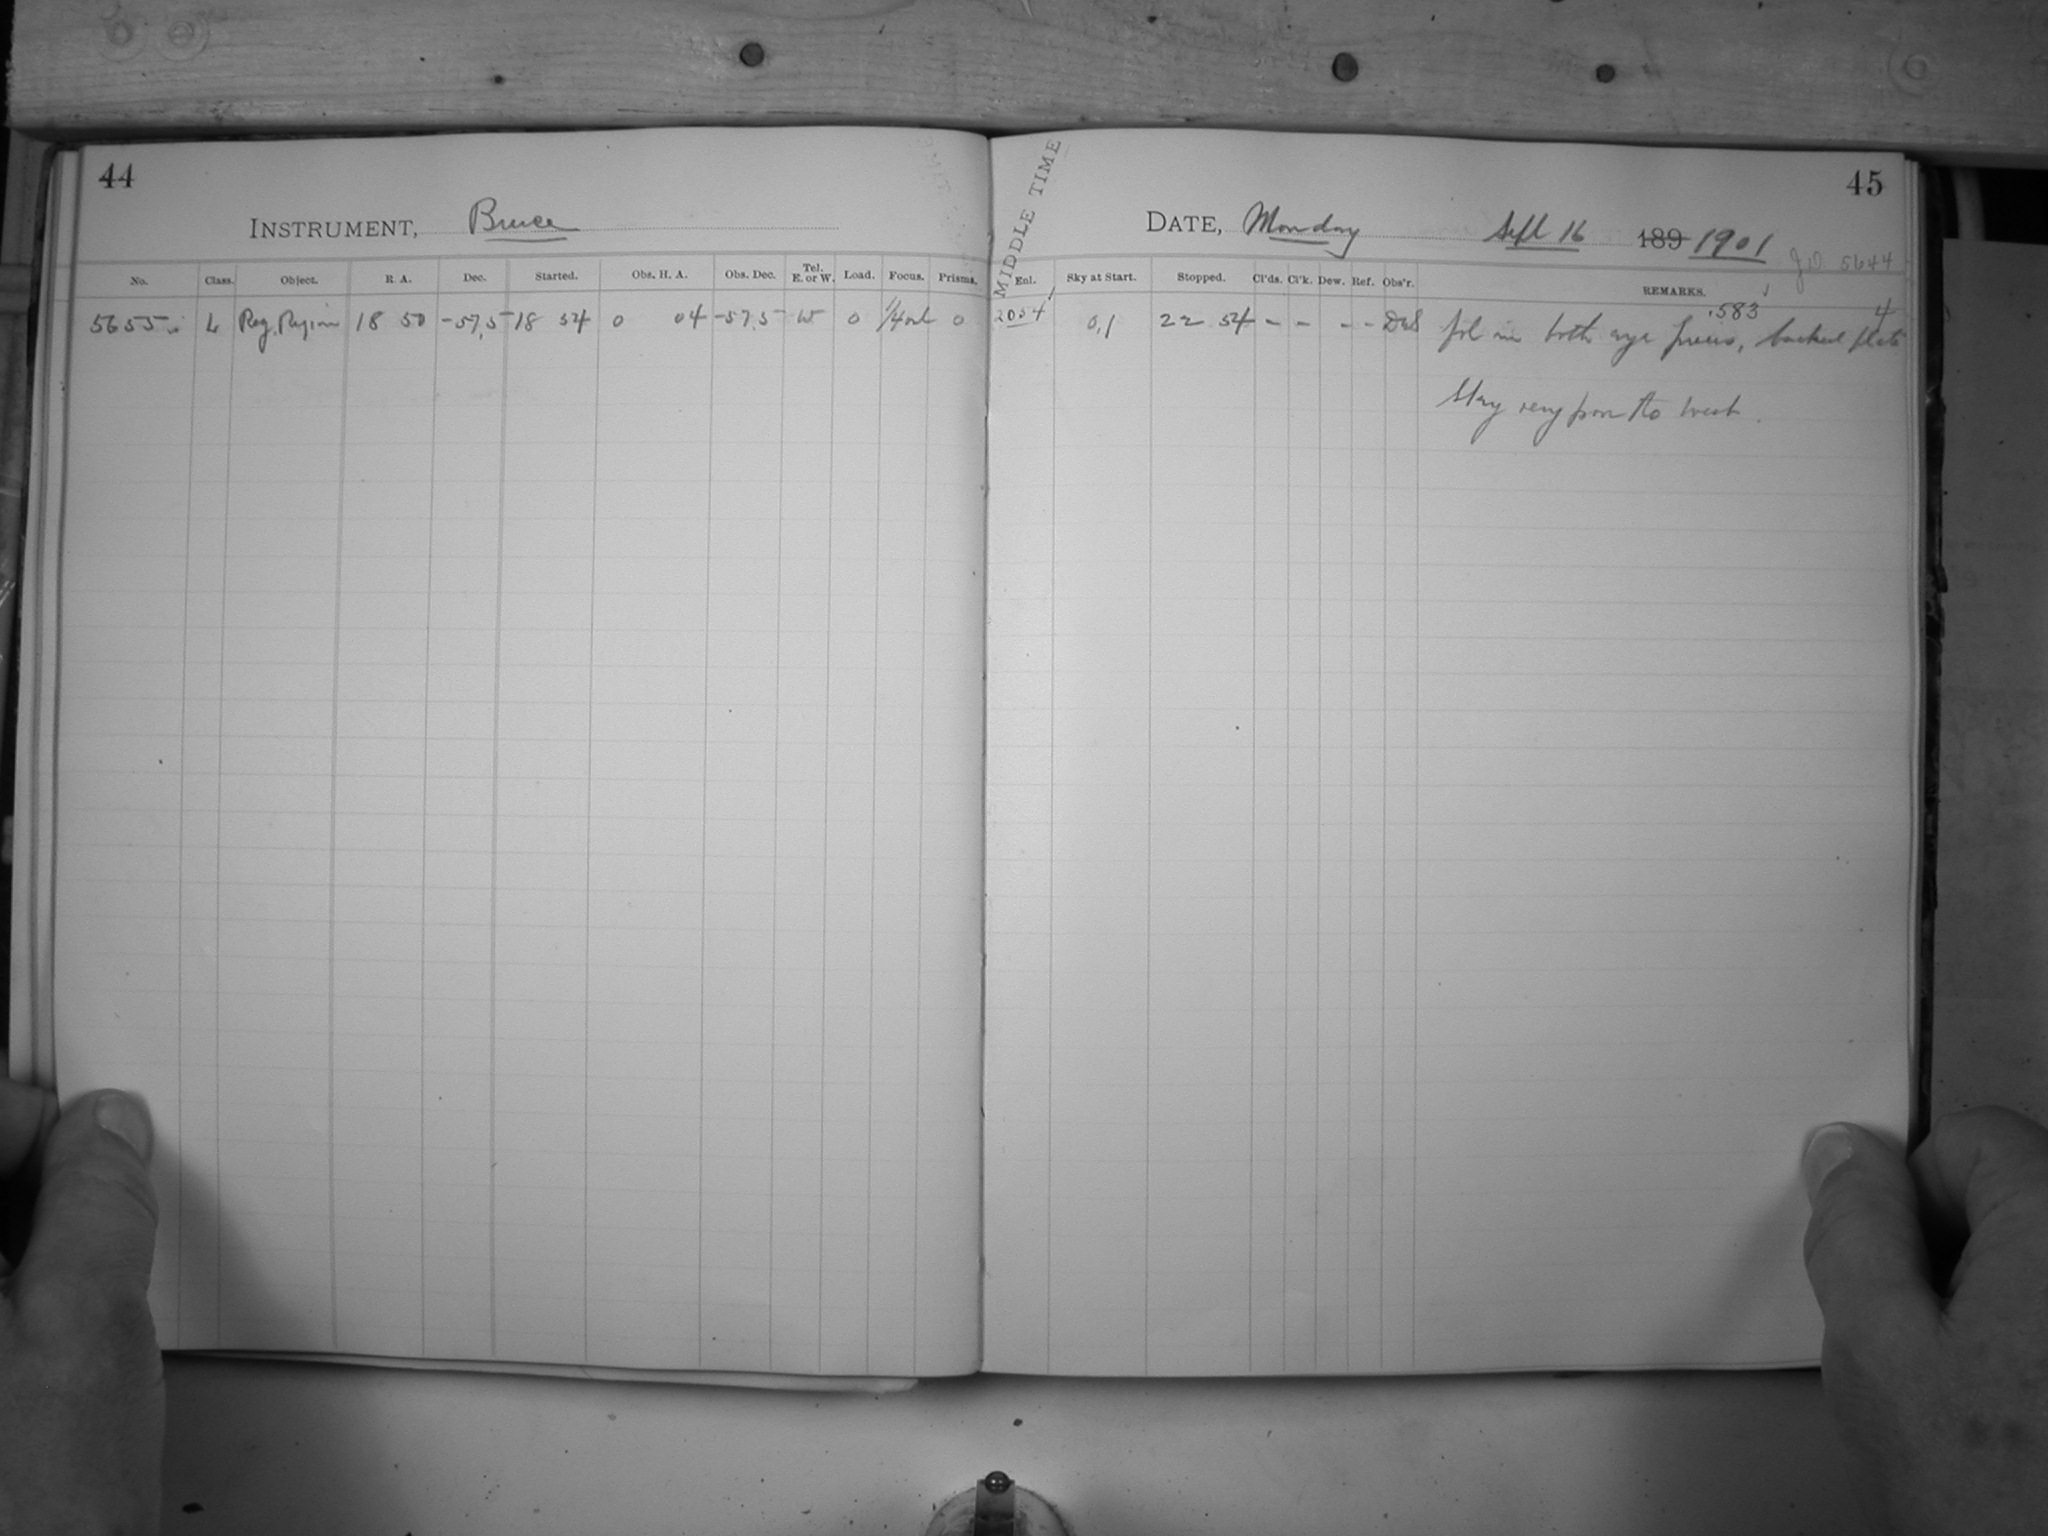 44
INSTRUMENT, Bruce
No. Class. Object. R A. Dec. Started. Obs. H. A. Obs. Dec. Tel. E. or W. Load. Focus. Prisms.
5655 L Reg. Region 18 50 -57.5 18 54 0 04 -57.5 W 0 0
MIDDLE TIME
45
DATE, Monday Sept 16 189 1901
J.D. 5644
Enl. Sky at Start. Stopped. Cl'ds. Cl'k. Dew. Ref. Obs'r. REMARKS.
.583 4
2054 0,1 22 54 - - - - fol in both eye pieces, backed plate
Sky very poor to west.